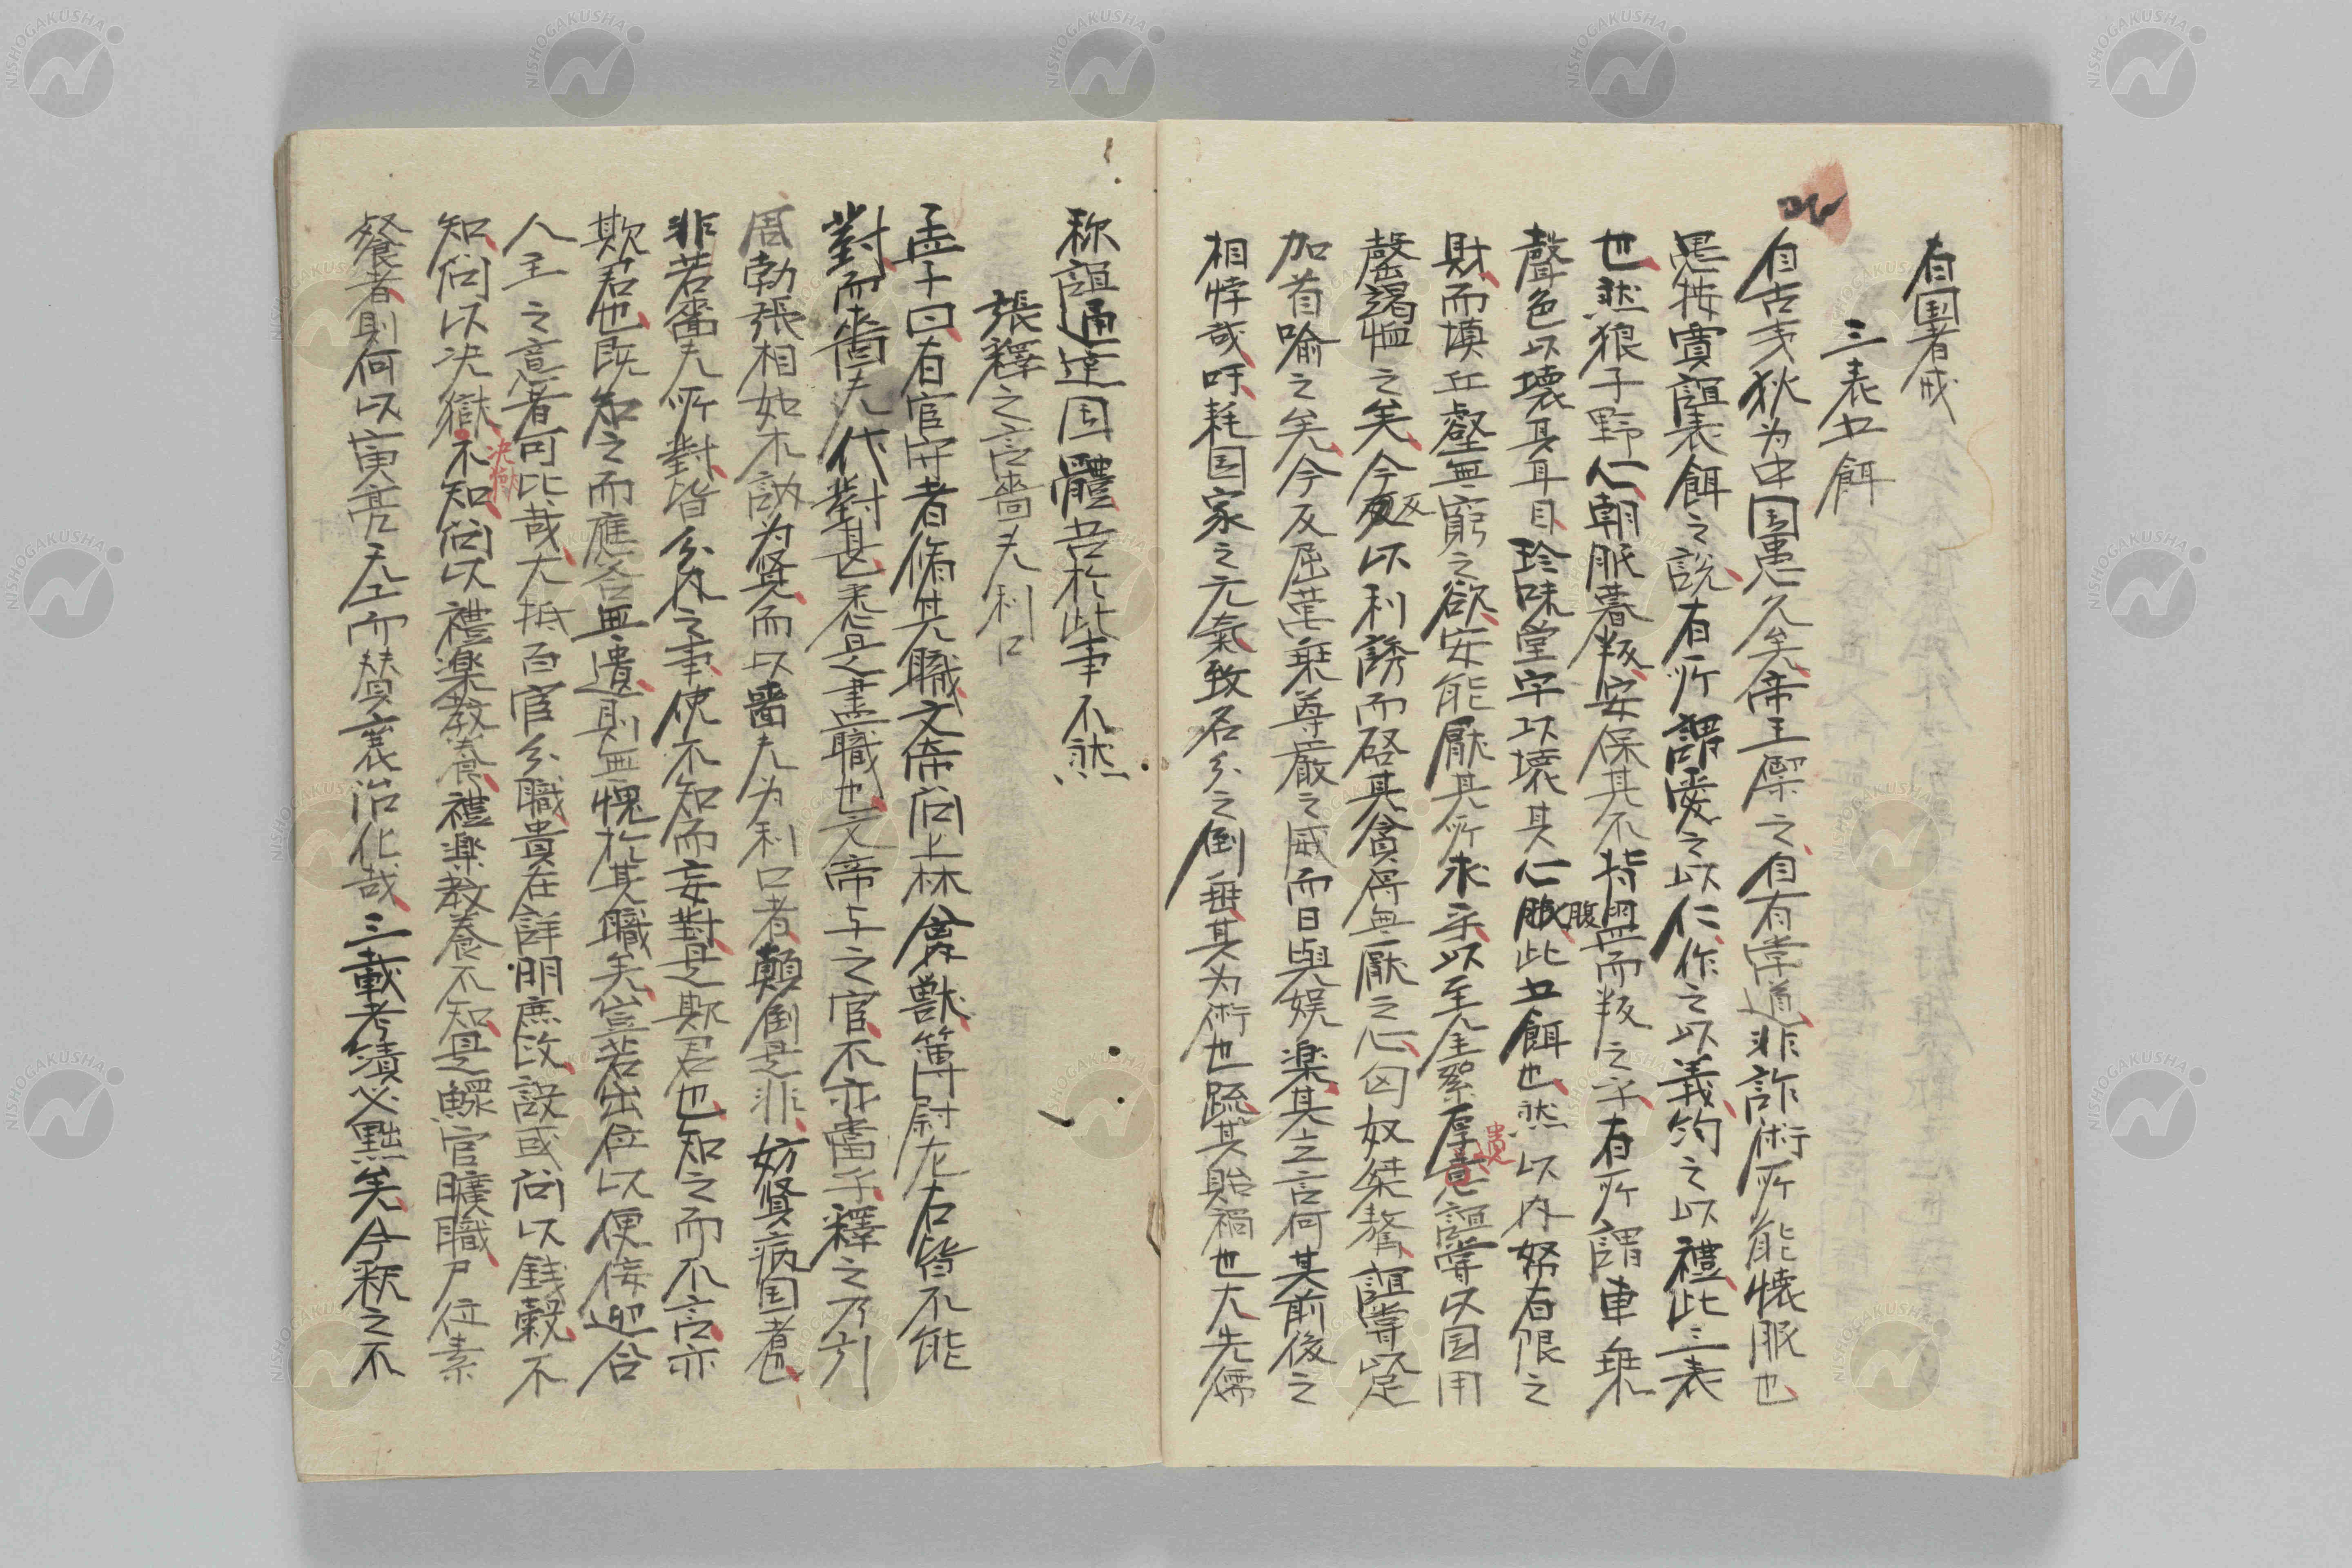 有国者戒
三表五餌
自古夷狄为中国患久矣帝王禦之自有常道非詐術所能懐服也
愚按賈誼表餌之說有所謂愛之以仁作之以義約之以禮此三表
也然狼子野心朝服暮叛安保其不背盟而叛之乎有所謂車乗
聲色以壊其耳目珍味堂宇以壊其心腹此五餌也然以内帑有限之
財而塡丘壑無窮之欲安能厭其所求乎以至金絮厚
患
誼嘗以国用
罄竭恤之矣今反以利誘而啓其貪得無厭之心匈奴桀驁誼嘗以足
加首喩之矣今反屈萬乗尊嚴之威而日與娯楽其立言何其前後之
相悖哉吁耗国家之元氣致名分之倒垂其为術也踈其貽禍也大先儒
称誼通達国體吾於此事不然
張釋之言嗇夫利口
孟子曰有官守者脩其職文帝问上林禽獸簿尉左右皆不能
對而嗇夫代對甚悉是盡職也文帝与之官不亦當乎釋之乃引
周勃張相如木訥为賢而以嗇夫为利口者顛倒是非妨賢病国者也
非若嗇夫所對皆分内之事使不知而妄對是欺君也知之而不言亦
欺君也既知之而應答無遺則無愧於其職矣豈若出位以便佞迎合
人主之意者可比哉大抵百官分職貴在詳明庶政設或问以銭穀不
知问以决獄
决獄
不知问以禮楽教養禮楽教養不知是鰥官曠職尸位素
餐者則何以寅亮天工而賛襄治化哉三載考績必黜矣今釈之不